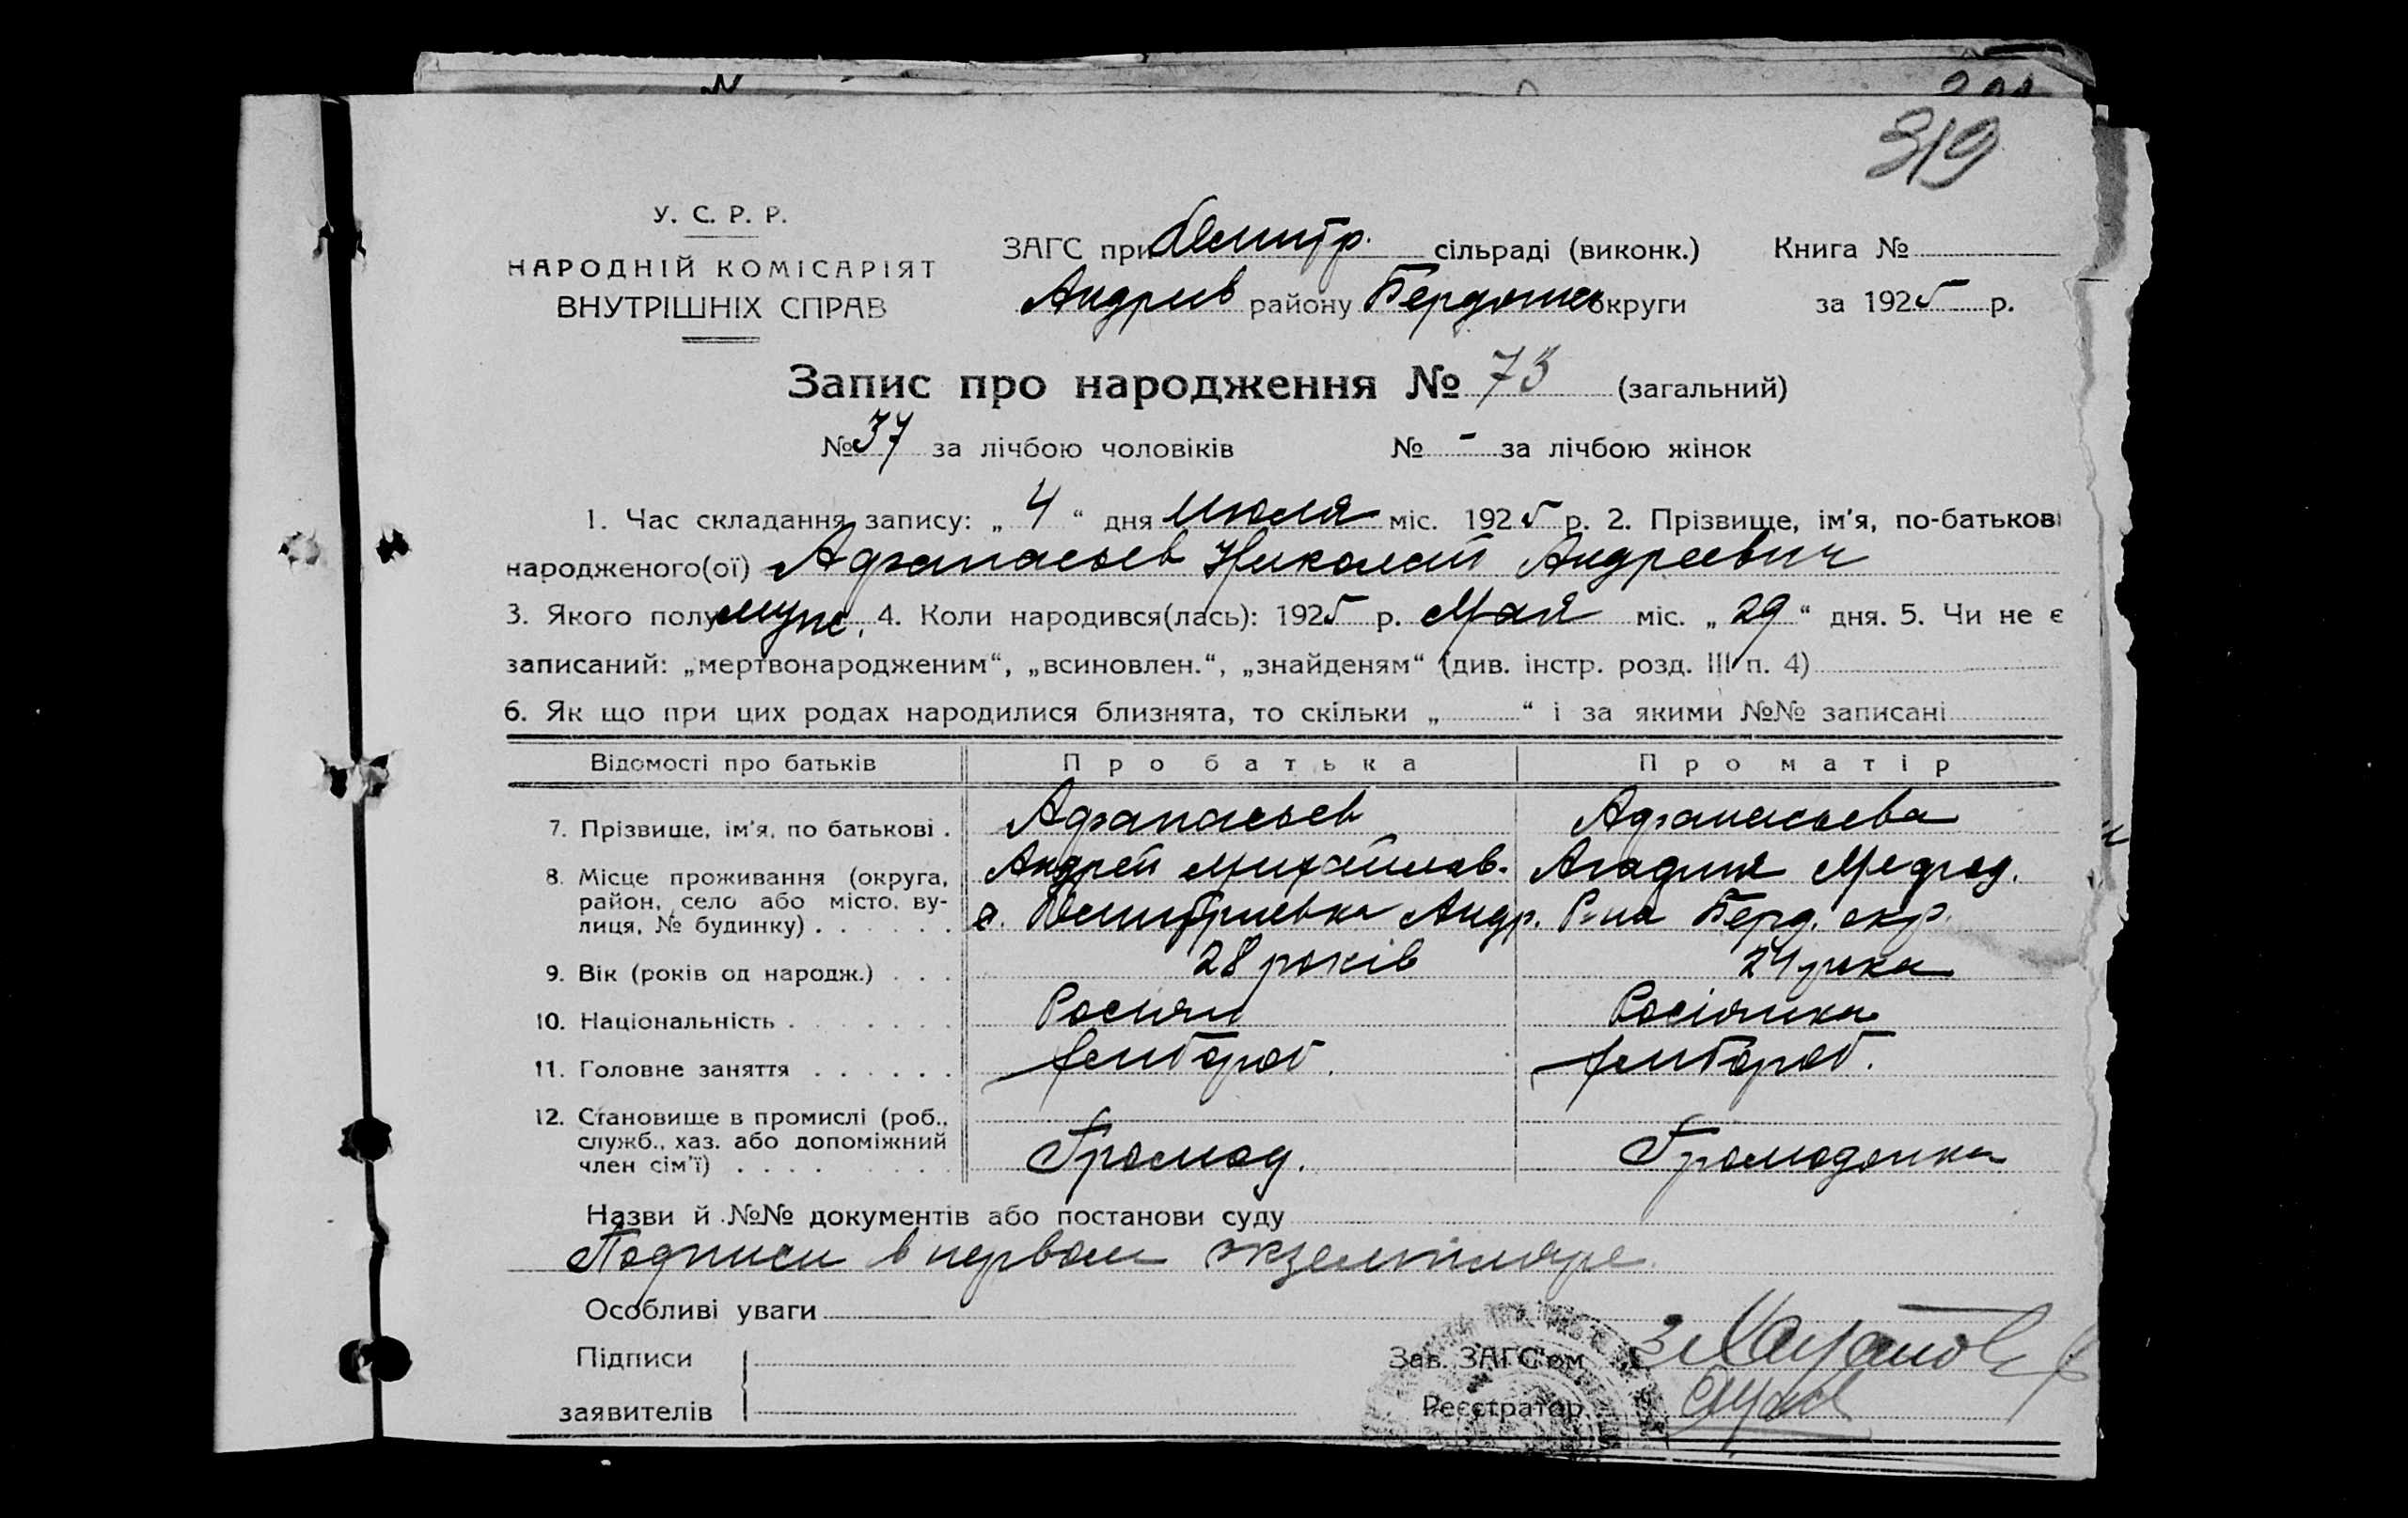 319
У. С. Р. Р.
НАРОДНІЙ КОМІСАРІЯТ
ВНУТРІШНІХ СПРАВ
ЗАГС при Дмитр. сільраді (виконк.) Книга №
Андреев району Бердянс округи за 1925 р.
Запис про народження № 73 (загальний)
№ 37 за лічбою чоловіків № - за лічбою жінок
1. Час складання запису: „ 4 “ дня Июля міс. 1925 р. 2. Прізвище, ім'я, по-батькові
народженого(ої) Афанасьев Николай Андреевич
3. Якого полу муж. 4. Коли народився(лась): 1925 р. Мая міс. „ 29 “ дня. 5. Чи не є
записаний: „мертвонародженим“, „всиновлен.“, „знайденям“ (див. інстр. розд. III п. 4)
6. Як що при цих родах народилися близнята, то скільки „ “ і за якими №№ записані
Відомості про батьків Про батька Про матір
7. Прізвище, ім'я, по батькові . Афанасьев Афанасьева
Андрей Михайлов.
8. Місце проживання (округа, район, село або місто, ву-
лиця, № будинку) . . . . . . с. Дмитриевка Андр. Р-на Берд. окр.
9. Вік (років од народж.) . . . 28 років 24 рока
10. Національність . . . . . . . Росиян Росіянка
11. Головне заняття . . . . . . хлібороб. хлібороб.
12. Становище в промислі (роб.,
служб., хаз. або допоміжний
член сім'ї) . . . . . . . . Громад. Громадянка
Назви й №№ документів або постанови суду
Подписи в первом экземпляре.
Особливі уваги
Підписи
заявителів
Зав. ЗАГС'ом
Реєстратор